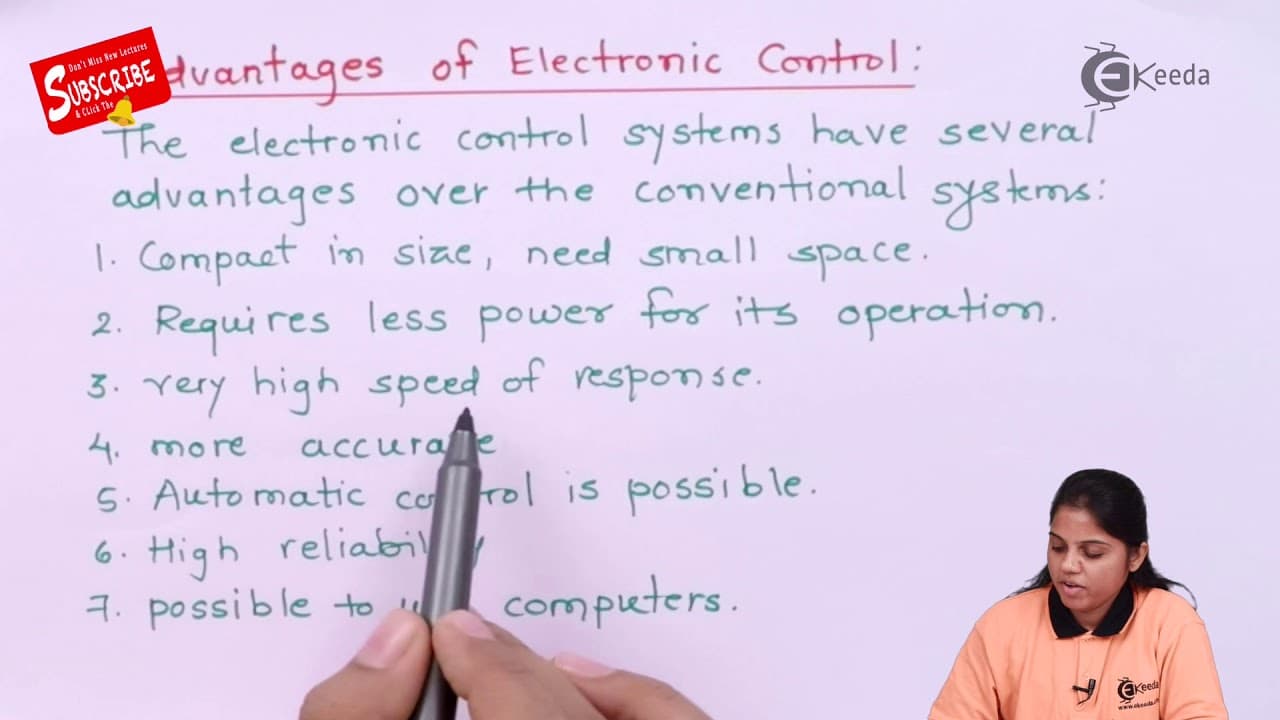 Don't Miss New Lectures
SUBSCRIBE
& CLick The
dvantages of Electronic Control:
EKeeda
The electronic control systems have several
advantages over the conventional systems:
1. Compact in size, need small space.
2. Requires less power for its operation.
3. very high speed of response.
4. more accurate
5. Automatic control is possible.
6. High reliability
7. possible to computers.
EKeeda